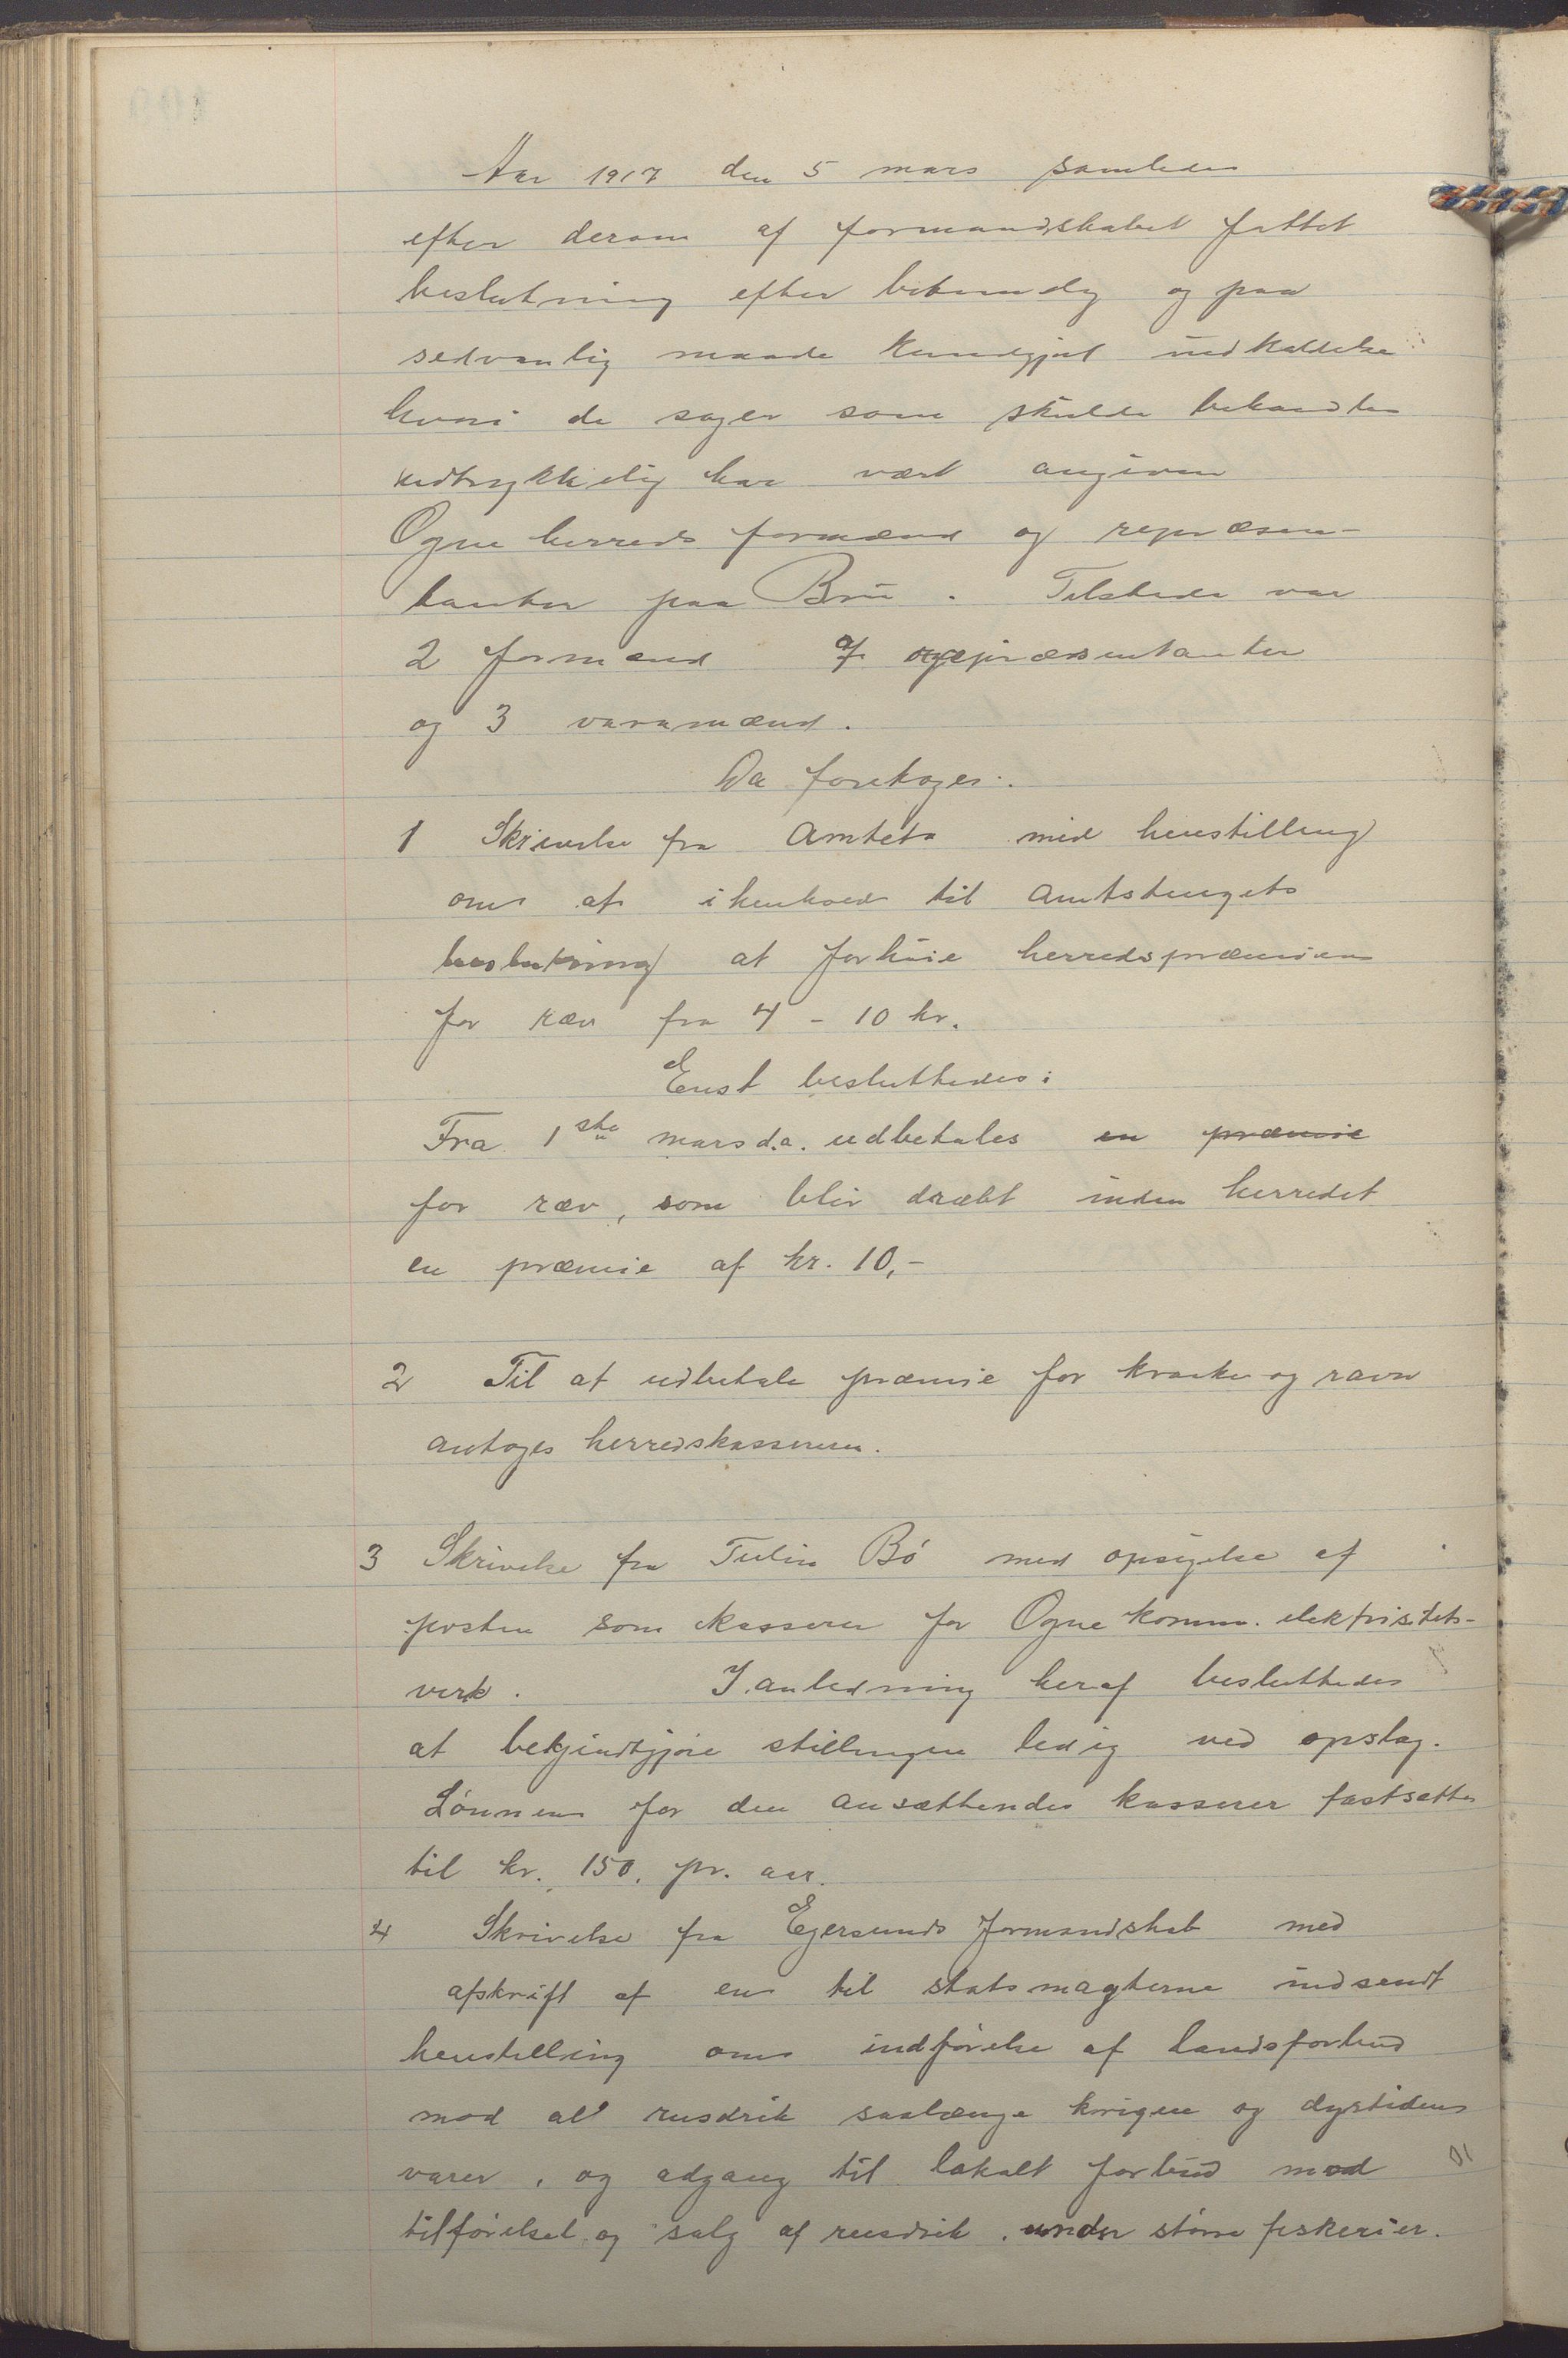 Aar 1917 den 5 mars samledes
efter derom af formandskabet fattet
beslutning efter betimelig og paa
sedvanlig maade kundgjort indkaldelse
hvori de sager som skulde behandles
udtrykkelig har vært angiven
Ogne herreds formænd og repræsen-
tanter paa Bru. Tilstede var
2 formænd 7 repræsentanter
og 3 varamænd.
Da foretoges:
1 Skrivelse fra Amtet med henstilling
om at i henhold til Amtstingets
beslutning at forhöie herredspræmien
for ræv fra 4 - 10 kr.
Enst besluttedes:
Fra 1ste mars d.a. udbetales en præmie
for ræv, som blir dræbt inden herredet
en præmie af kr. 10,-
2 Til at udbetale præmie for kraake og ravn
antoges herredskassereren.
3 Skrivelse fra Tulin Bö med opsigelse af
posten som kasserer for Ogne komm. elektrisitets-
verk. I anledning heraf besluttedes
at bekjendtgjöre stillingen ledig ved opslag.
Lönnen for den ansættendes kasserer fastsættes
til kr. 150, pr. aar.
4 Skrivelse fra Egersunds formandskab med
afskrift af en til statsmagterne indsendt
henstilling om indförelse af landsforbud
mod al rusdrik saalænge krigen og dyrtiden
varer, og adgang til lokalt forbud mod
tilförelsel og salg af rusdrik under störe fiskerier.